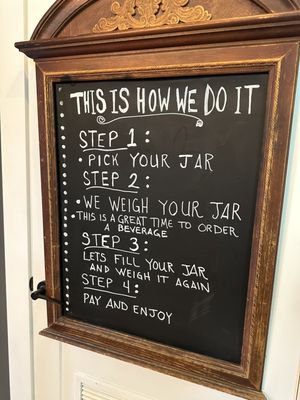 THIS IS HOW WE DO IT
STEP 1:
• PICK YOUR JAR
STEP 2:
• WE WEIGH YOUR JAR
• THIS IS A GREAT TIME TO ORDER
A BEVERAGE
STEP 3:
LETS FILL YOUR JAR
AND WEIGH IT AGAIN
STEP 4:
PAY AND ENJOY